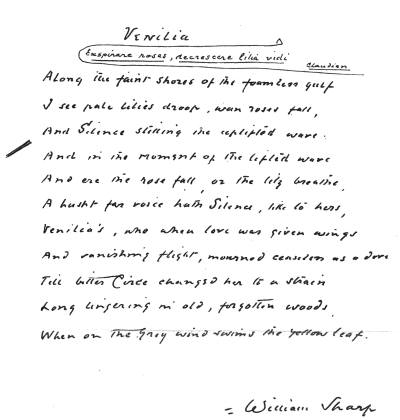 Venilia
Exspirare rosas, decrescere lilia vidi
Claudian
Along the faint shores of the foamless gulf
I see pale lilies droop, wan roses fall,
And Silence stilling the uplifted wave.
And in the moment of the lifted wave
And ere the rose fall, or the lily breathe,
A husht far voice hath Silence, like to hers,
Venilia's, who when love was given wings
And vanishing flight, mourned ceaseless as a dove
Till bitter Circe changed her to a strain
Long lingering in old, forgotten woods
When on the grey wind swims the yellow leaf.
= William Sharp